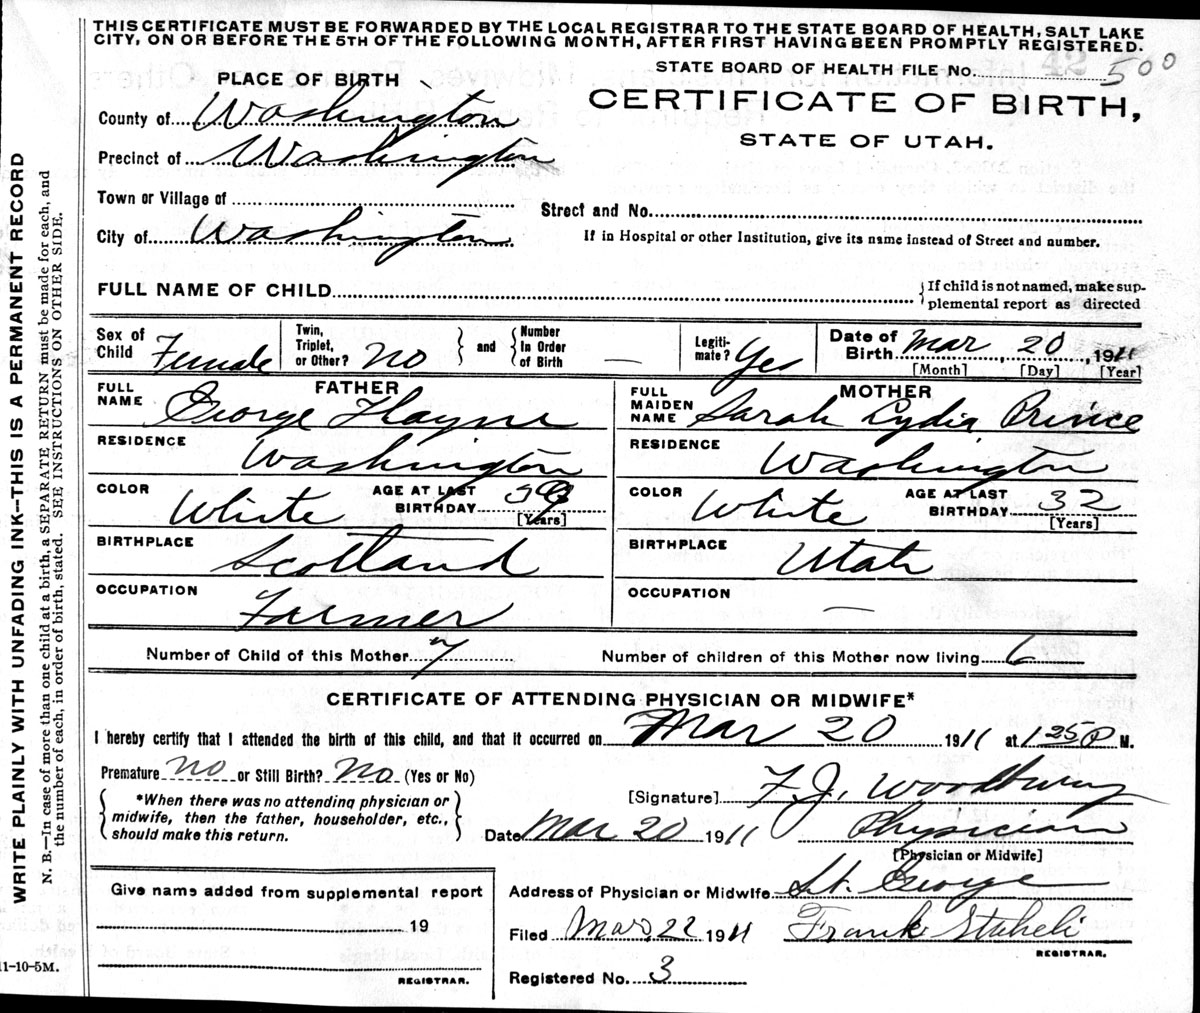 THIS CERTIFICATE MUST BE FORWARDED BY THE LOCAL REGISTRAR TO THE STATE BOARD OF HEALTH, SALT LAKE
CITY, ON OR BEFORE THE 5TH OF THE FOLLOWING MONTH, AFTER FIRST HAVING BEEN PROMPTLY REGISTERED.
STATE BOARD OF HEALTH FILE No. 42 500
PLACE OF BIRTH
CERTIFICATE OF BIRTH,
STATE OF UTAH.
County of Washington
Precinct of Washington
Town or Village of
Street and No.
City of Washington
If in Hospital or other Institution, give its name instead of Street and number.
FULL NAME OF CHILD
{If child is not named, make sup-
plemental report as directed
Sex of Child Female
Twin, Triplet, or Other? No } and { Number In Order of Birth —
Legiti-mate? Yes
Date of Birth Mar, 20, 1911
[Month] [Day] [Year]
FATHER
FULL NAME George Hayne
MOTHER
FULL MAIDEN NAME Sarah Lydia Prince
RESIDENCE Washington
RESIDENCE Washington
COLOR White AGE AT LAST BIRTHDAY [Years]
COLOR White AGE AT LAST BIRTHDAY 32 [Years]
BIRTHPLACE Scotland
BIRTHPLACE Utah
OCCUPATION Farmer
OCCUPATION —
Number of Child of this Mother 7
Number of children of this Mother now living 6
CERTIFICATE OF ATTENDING PHYSICIAN OR MIDWIFE*
I hereby certify that I attended the birth of this child, and that it occurred on Mar 20 1911 at 1 25 P M.
Premature no or Still Birth? No (Yes or No)
{ *When there was no attending physician or
midwife, then the father, householder, etc.,
should make this return. }
[Signature] F. J. Woodbury
Date Mar 20 1911 Physician
[Physician or Midwife]
Give name added from supplemental report
19
REGISTRAR.
Address of Physician or Midwife St. George
Filed Mar. 22 1911 Frank Staheli
REGISTRAR.
Registered No. 3
11-10-5M.
WRITE PLAINLY WITH UNFADING INK—THIS IS A PERMANENT RECORD
N. B.—In case of more than one child at a birth, a SEPARATE RETURN must be made for each, and
the number of each, in order of birth, stated. SEE INSTRUCTIONS ON OTHER SIDE.